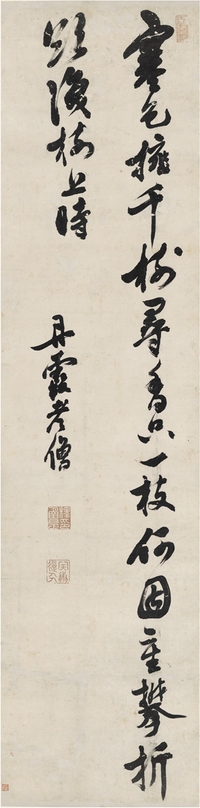 寒色擁千樹尋香只一枝何因重攀折
頭復枝上時
丹霞老僧